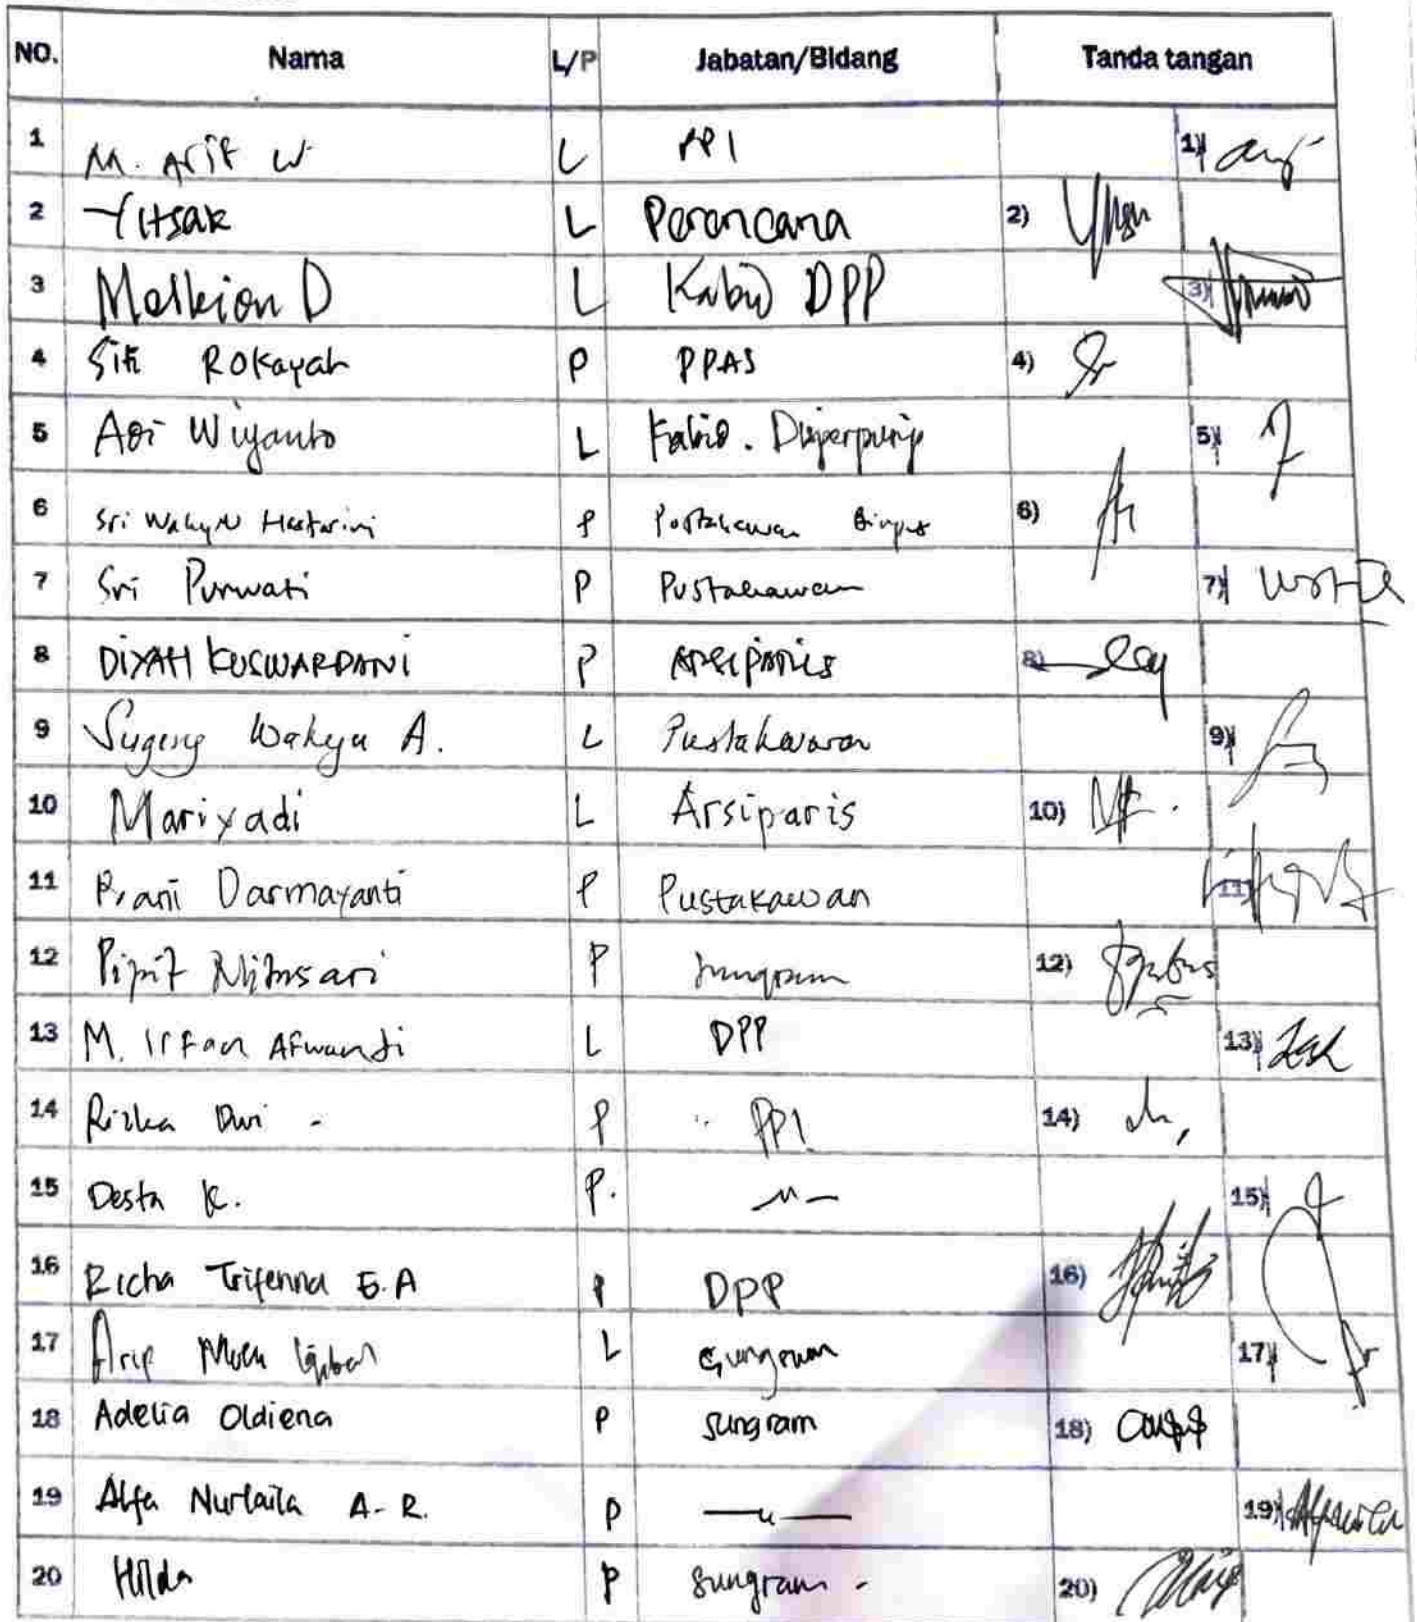 NO. Nama L/P Jabatan/Bidang Tanda tangan
1 M. Arif W L PPI 1)
2 Yitsak L Perencana 2)
3 Melkion D L Kabid DPP 3)
4 Siti Rokayah P PPAS 4)
5 Adi Wiyanto L Kabid. 5)
6 Sri Wahyu Hastarini P 6)
7 Sri Purwati P Pustakawan 7)
8 DIYAH KUSWARDANI P Arsiparis 8)
9 Sugeng Wahyu A. L Pustakawan 9)
10 Mariyadi L Arsiparis 10)
11 Prani Darmayanti P Pustakawan 11)
12 Pipit P sungram 12)
13 M. Irfan Afwandi L DPP 13)
14 Rizka Dwi - P PPI 14)
15 Desta K. P. -〃- 15)
16 Richa Trifenna E.A P DPP 16)
17 Arip L Sungram 17)
18 Adelia Oldiena P Sungram 18)
19 Alfa Nurlaila A-R. P —〃— 19)
20 Hilda P Sungram - 20)